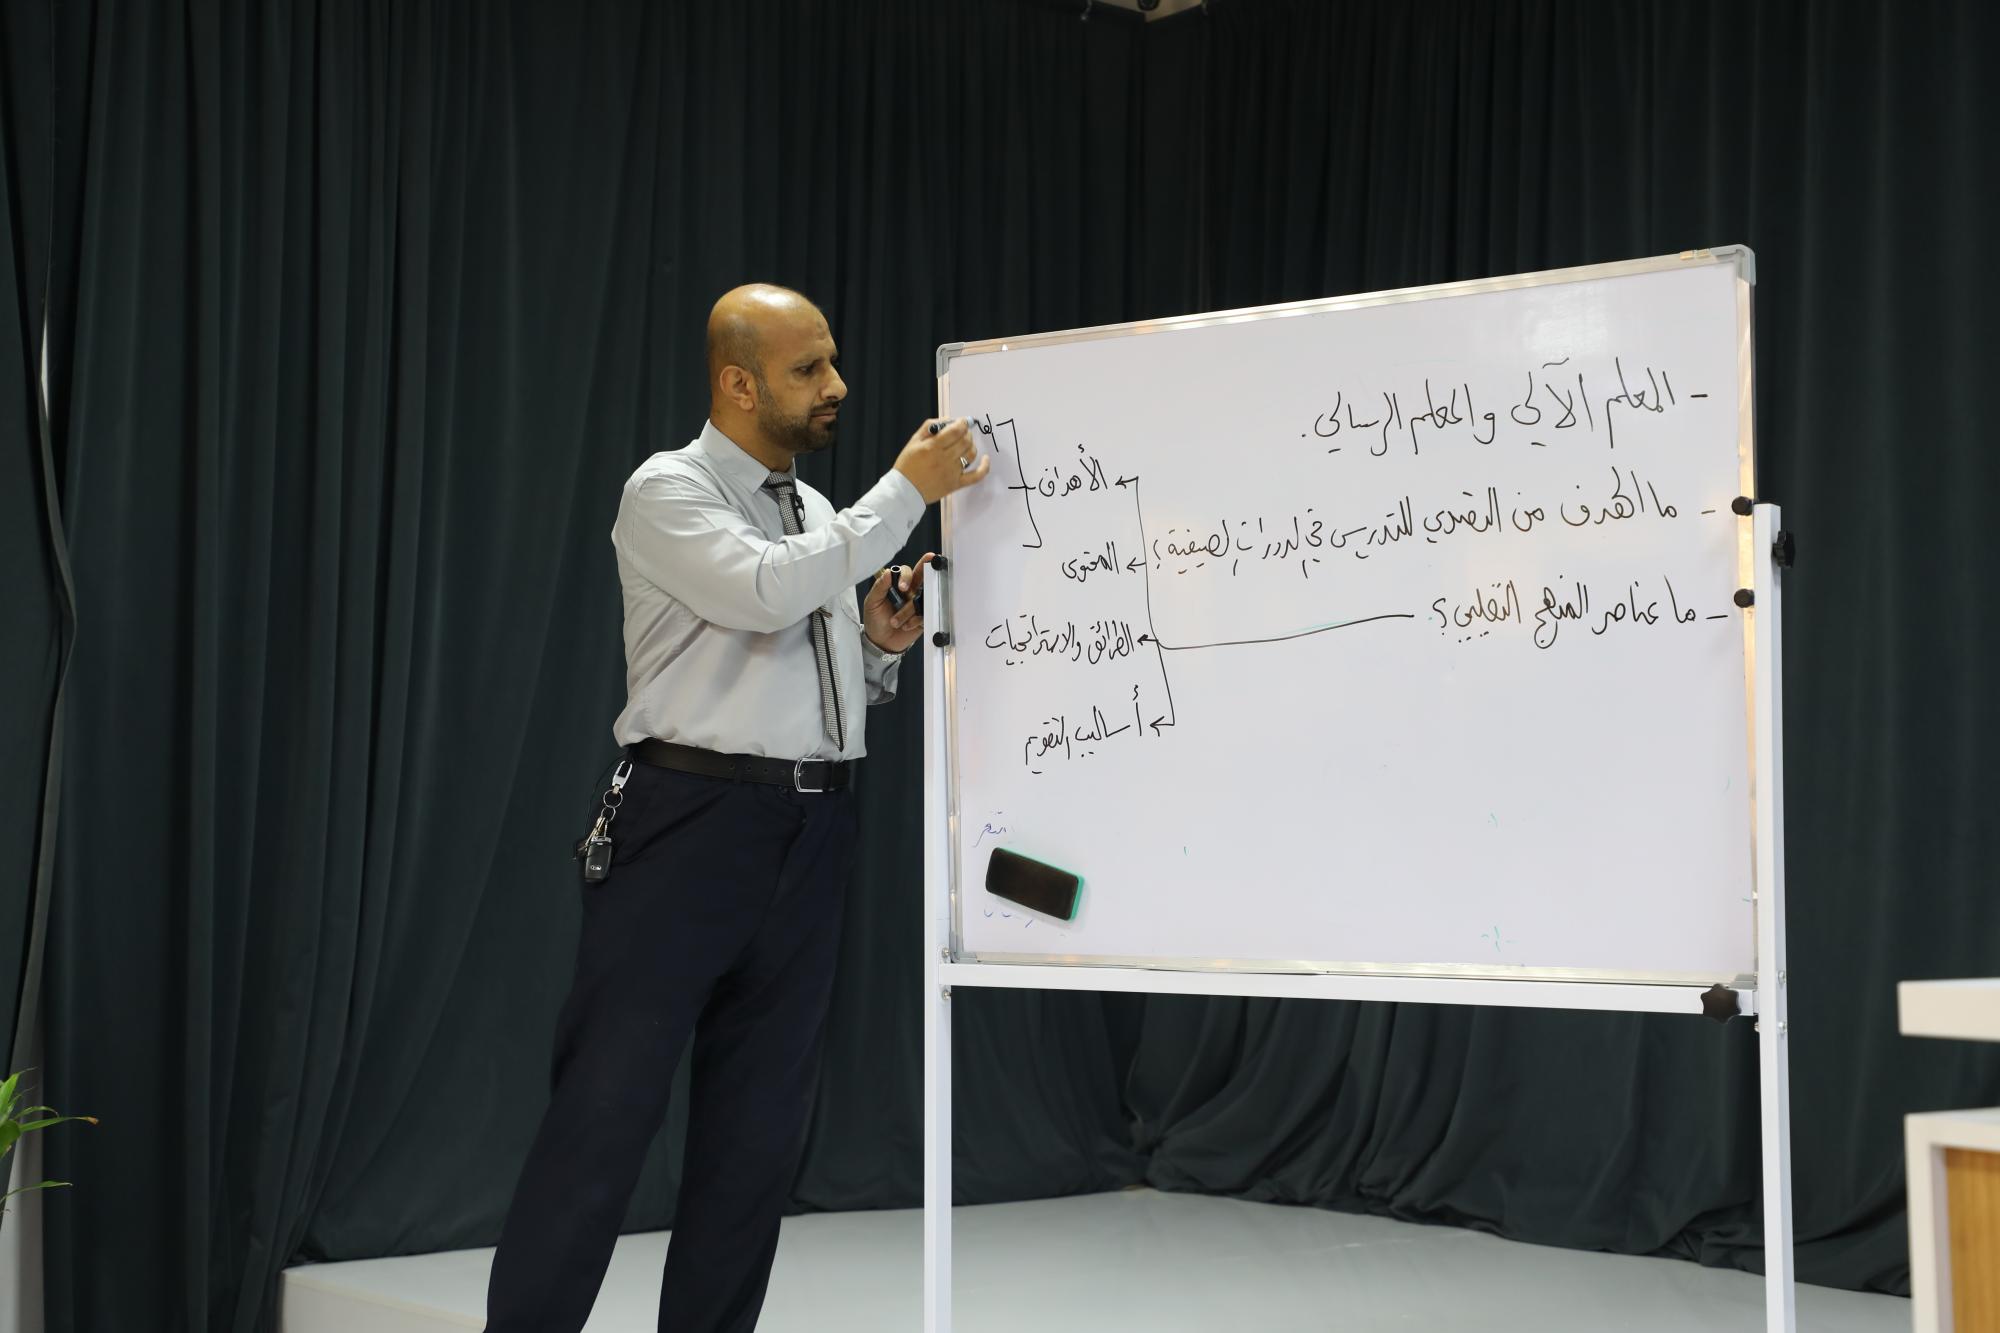 - المعلم الآلي والمعلم الرسالي.
- ما الهدف من التصدي للتدريس في الدورات الصيفية؟
- ما عناصر المنهج التعليمي؟
الأهداف
المحتوى
الطرائق والاستراتيجيات
أساليب التقويم